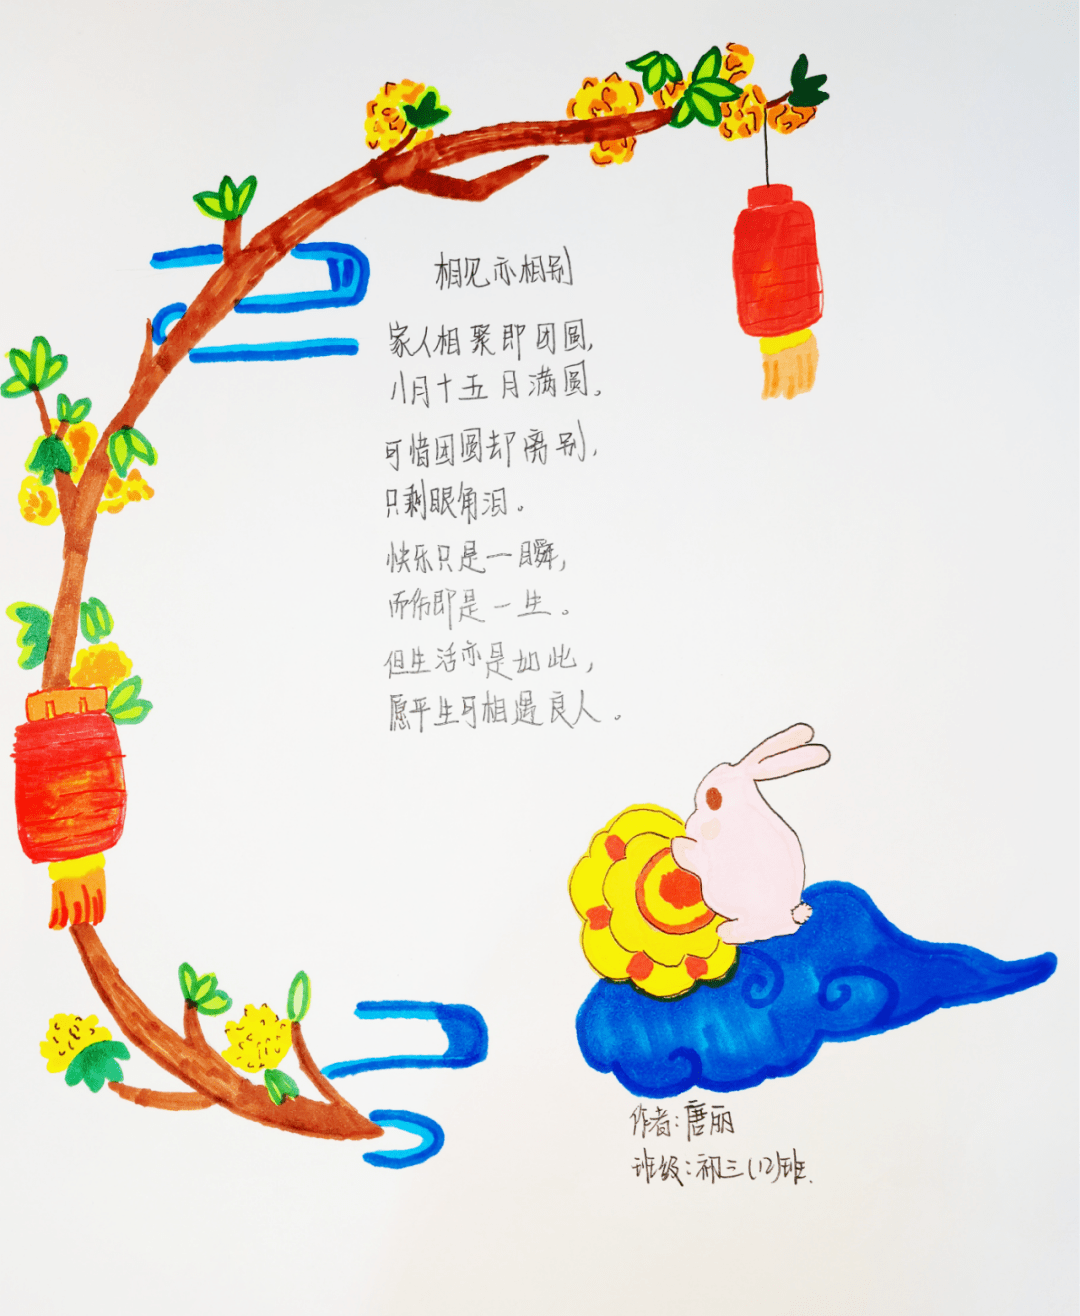 相见亦相别
家人相聚即团圆,
八月十五月满圆。
可惜团圆却离别,
只剩眼角泪。
快乐只是一瞬,
而伤即是一生。
但生活亦是如此,
愿平生可相遇良人。
作者:唐丽
班级:初三(12)班.